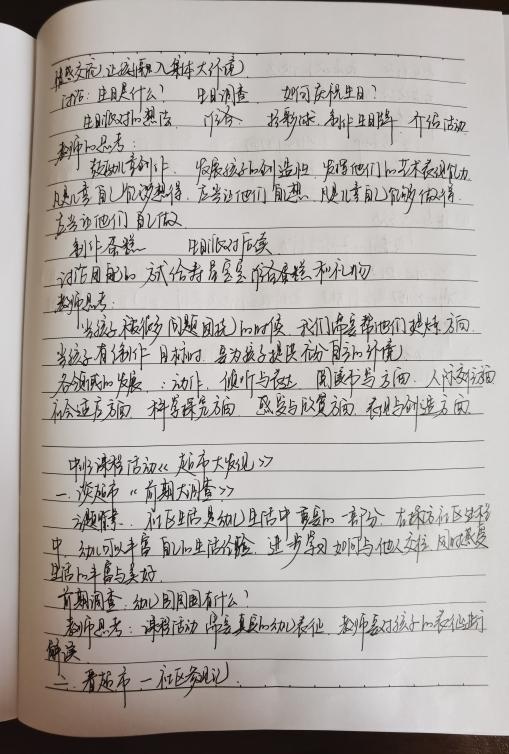 情感交流，让孩子融入集体大环境）
讨论：生日是什么？ 生日调查 如何庆祝生日？
生日派对的想法 讨论 投影仪、制作生日牌 介绍活动
教师的思考：
鼓励儿童创作，发展孩子的创造性，发挥他们的艺术表现能力
凡是儿童自己能够想得，应当让他们自己想，凡是儿童自己能够做得，
应当让他们自己做
制作蛋糕 生日派对后续
讨论用自己的方式给寿星宝宝准备蛋糕和礼物
教师思考：
当孩子被很多问题困扰的时候，我们需要帮他们提炼方向
当孩子有了制作目标时，要为孩子提供充分自主的环境
各领域的发展：动作、倾听与表达、阅读书写方面、人际交往方面
社会适应方面、科学探究方面、感受与欣赏方面、表现与创造方面
中班课程活动《超市大发现》
一、谈超市《前期大调查》
主题背景：社区生活是幼儿生活中重要的一部分，在探访社区生活
中，幼儿可以丰富自己的生活经验，进一步学习如何与他人交往，同时感受
生活的丰富与美好。
前期调查：幼儿园周围有什么？
教师思考：课程活动需要真实的幼儿表征，教师要对孩子的表征进行
解读
二、看超市 一社区参观记